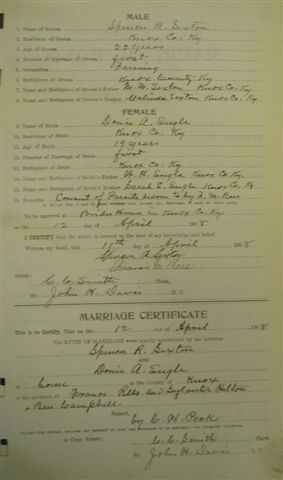 MALE
1. Name of Groom Spencer R. Sexton
2. Residence of Groom Knox Co. Ky
3. Age of Groom 22 years
4. Number of Marriage of Groom first
5. Occupation Farming
6. Birthplace of Groom Knox County, Ky
7. Name and Birthplace of Groom's Father M. M. Sexton Knox Co. Ky.
8. Name and Birthplace of Groom's Mother Malinda Sexton Knox Co. Ky.
FEMALE
9. Name of Bride Donie A. Engle
10. Residence of Bride Knox Co. Ky
11. Age of Bride 19 years
12. Number of Marriage of Bride first
13. Birthplace of Bride Knox Co. Ky
14. Name and Birthplace of Bride's Father W. H. Engle Knox Co. Ky.
15. Name and Birthplace of Bride's Mother Sarah E. Engle Knox Co. Ky
16. Remarks Consent of Parents sworn to by
To be married at Brides Home in Knox Co. Ky.
on the 12 day of April 1908
I CERTIFY that the above is correct to the best of my knowledge and belief.
Witness my hand, this 11th day of April 1908
Spencer R Sexton
Attest:
C. C. Smith Clerk
By John H. Davis D. C.
MARRIAGE CERTIFICATE
This is to Certify, That on the 12 day of April 1908
The RITES OF MARRIAGE were legally solemnized by me between
Spencer R. Sexton
AND
Donie A. Engle
at home in the County of Knox
in the presence of and Sylvester
& Ben Campbell
Signed,
by C. H. Peck
A Copy Attest:
C. C. Smith Clerk
By John H. Davis D. C.